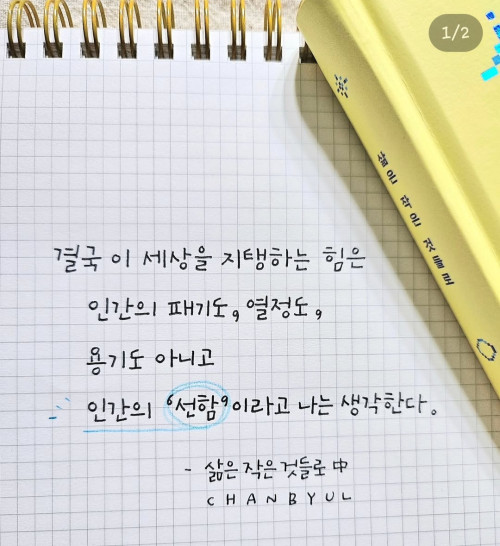 1/2
삶은 작은 것들로
결국 이 세상을 지탱하는 힘은
인간의 패기도, 열정도,
용기도 아니고
인간의 '선함'이라고 나는 생각한다.
- 삶은 작은것들로 中
CHANBYUL